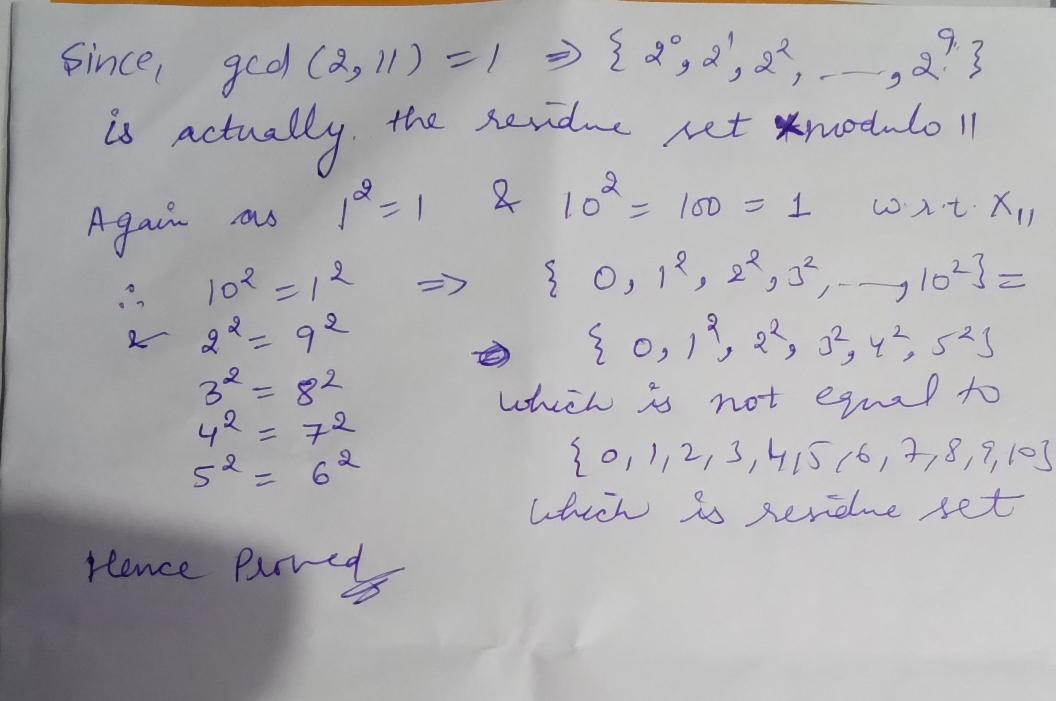 Since, gcd (2, 11) = 1 ⇒ { 2⁰, 2¹, 2², ..., 2⁹ }
is actually. the residue set modulo 11
Again as 1² = 1 & 10² = 100 = 1 w.r.t. X₁₁
∴ 10² = 1² ⇒ { 0, 1², 2², 3², ..., 10² } =
& 2² = 9² { 0, 1², 2², 3², 4², 5² }
3² = 8² which is not equal to
4² = 7² { 0, 1, 2, 3, 4, 5, 6, 7, 8, 9, 10 }
5² = 6² which is residue set
Hence Proved